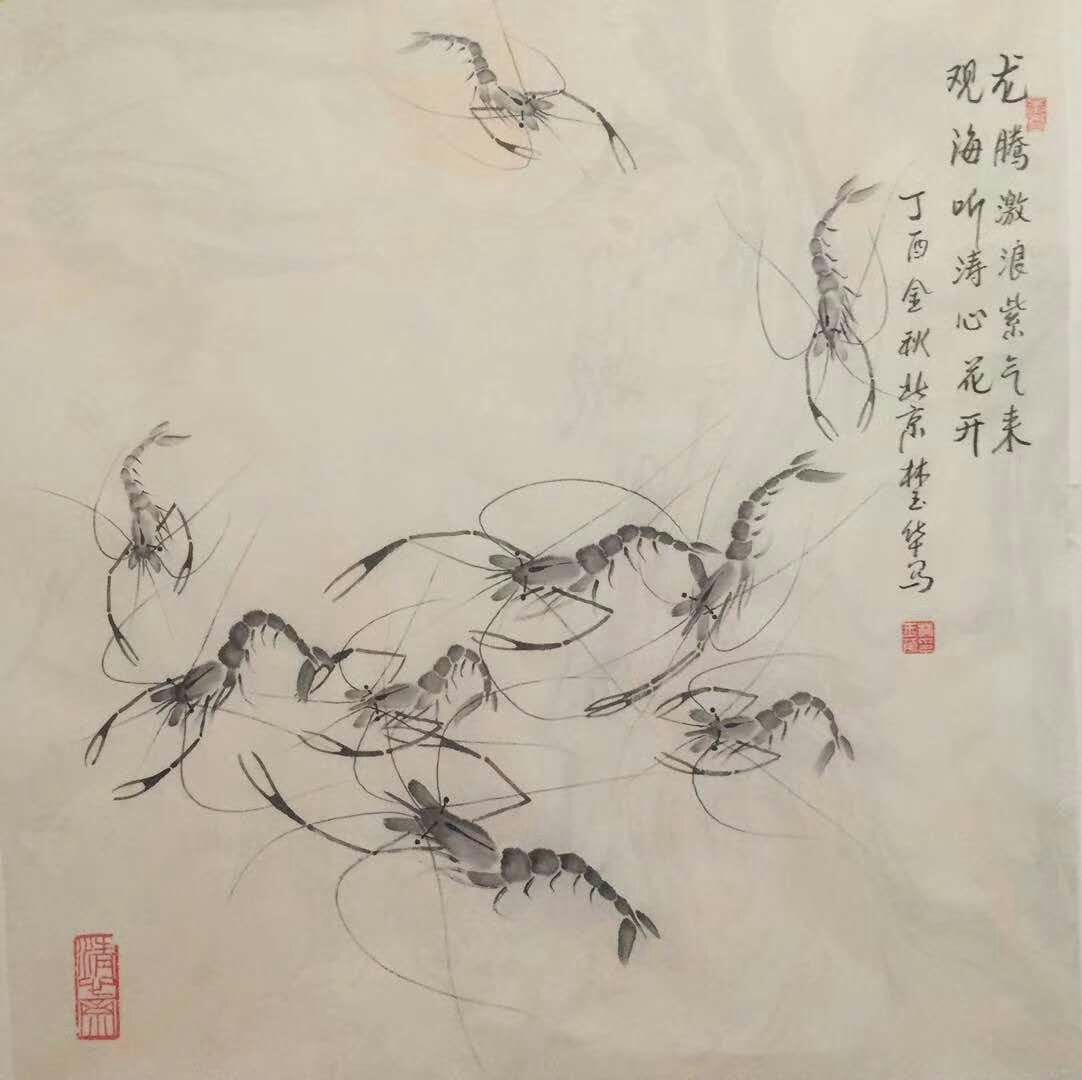 龙腾激浪紫气来
观海听涛心花开
丁酉金秋北京林玉华写